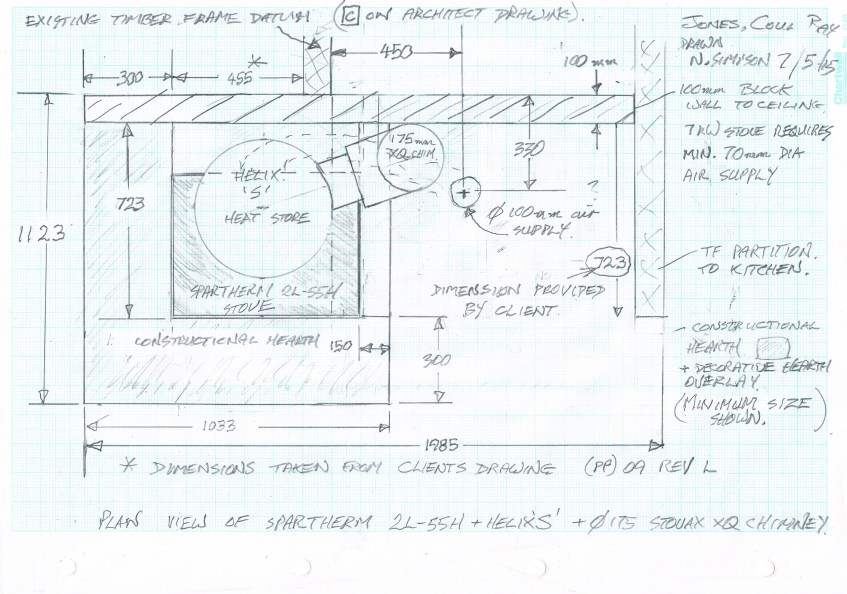 EXISTING TIMBER FRAME DATUM (C ON ARCHITECT DRAWING).
JONES, COUL RAY
DRAWN
N. SIMPSON 7/5/15
450
100 mm
300
455
*
100mm BLOCK
WALL TO CEILING
7KW STOVE REQUIRES
MIN. 70mm DIA
AIR SUPPLY
175mm
XQ CHIM
330
HELIX
'S'
HEAT STORE
723
1123
?
Ø 100mm air
SUPPLY.
723
TF PARTITION.
TO KITCHEN.
SPARTHERM 2L-55H
STOVE
DIMENSION PROVIDED
BY CLIENT.
CONSTRUCTIONAL HEARTH
150
300
CONSTRUCTIONAL
HEARTH
+ DECORATIVE HEARTH
OVERLAY.
(MINIMUM SIZE
SHOWN.)
1033
1985
* DIMENSIONS TAKEN FROM CLIENTS DRAWING (PP) 09 REV L
PLAN VIEW OF SPARTHERM 2L-55H + HELIX 'S' + Ø175 STOVAX XQ CHIMNEY.